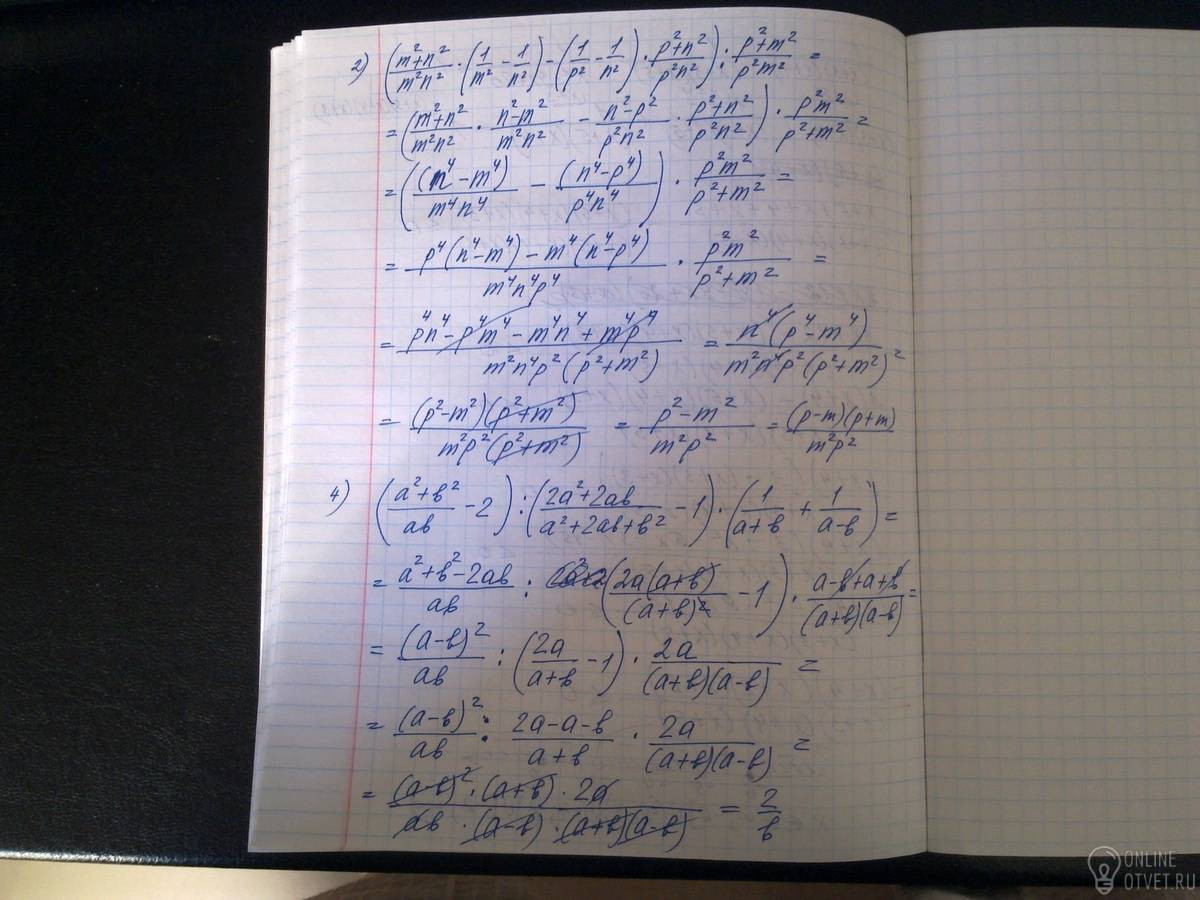 2) ((m²+n²)/(m²n²) · (1/m² - 1/n²) - (1/p² - 1/n²) · (p²+n²)/(p²n²)) : (p²+m²)/(p²m²) =
= ((m²+n²)/(m²n²) · (n²-m²)/(m²n²) - (n²-p²)/(p²n²) · (p²+n²)/(p²n²)) · (p²m²)/(p²+m²) =
= ((n⁴-m⁴)/(m⁴n⁴) - (n⁴-p⁴)/(p⁴n⁴)) · (p²m²)/(p²+m²) =
= (p⁴(n⁴-m⁴) - m⁴(n⁴-p⁴))/(m⁴n⁴p⁴) · (p²m²)/(p²+m²) =
= (p⁴n⁴ - p⁴m⁴ - m⁴n⁴ + m⁴p⁴)/(m²n⁴p²(p²+m²)) = (n⁴(p⁴-m⁴))/(m²n⁴p²(p²+m²)) =
= ((p²-m²)(p²+m²))/(m²p²(p²+m²)) = (p²-m²)/(m²p²) = ((p-m)(p+m))/(m²p²)
4) ((a²+в²)/(aв) - 2) : ((2a²+2aв)/(a²+2aв+в²) - 1) · (1/(a+в) + 1/(a-в)) =
= (a²+в²-2aв)/(aв) : ((2a(a+в))/(a+в)² - 1) · (a-в+a+в)/((a+в)(a-в)) =
= (a-в)²/(aв) : (2a/(a+в) - 1) · 2a/((a+в)(a-в)) =
= (a-в)²/(aв) : (2a-a-в)/(a+в) · 2a/((a+в)(a-в)) =
= ((a-в)² · (a+в) · 2a)/(aв · (a-в) · (a+в)(a-в)) = 2/в
ONLINE
OTVET.RU